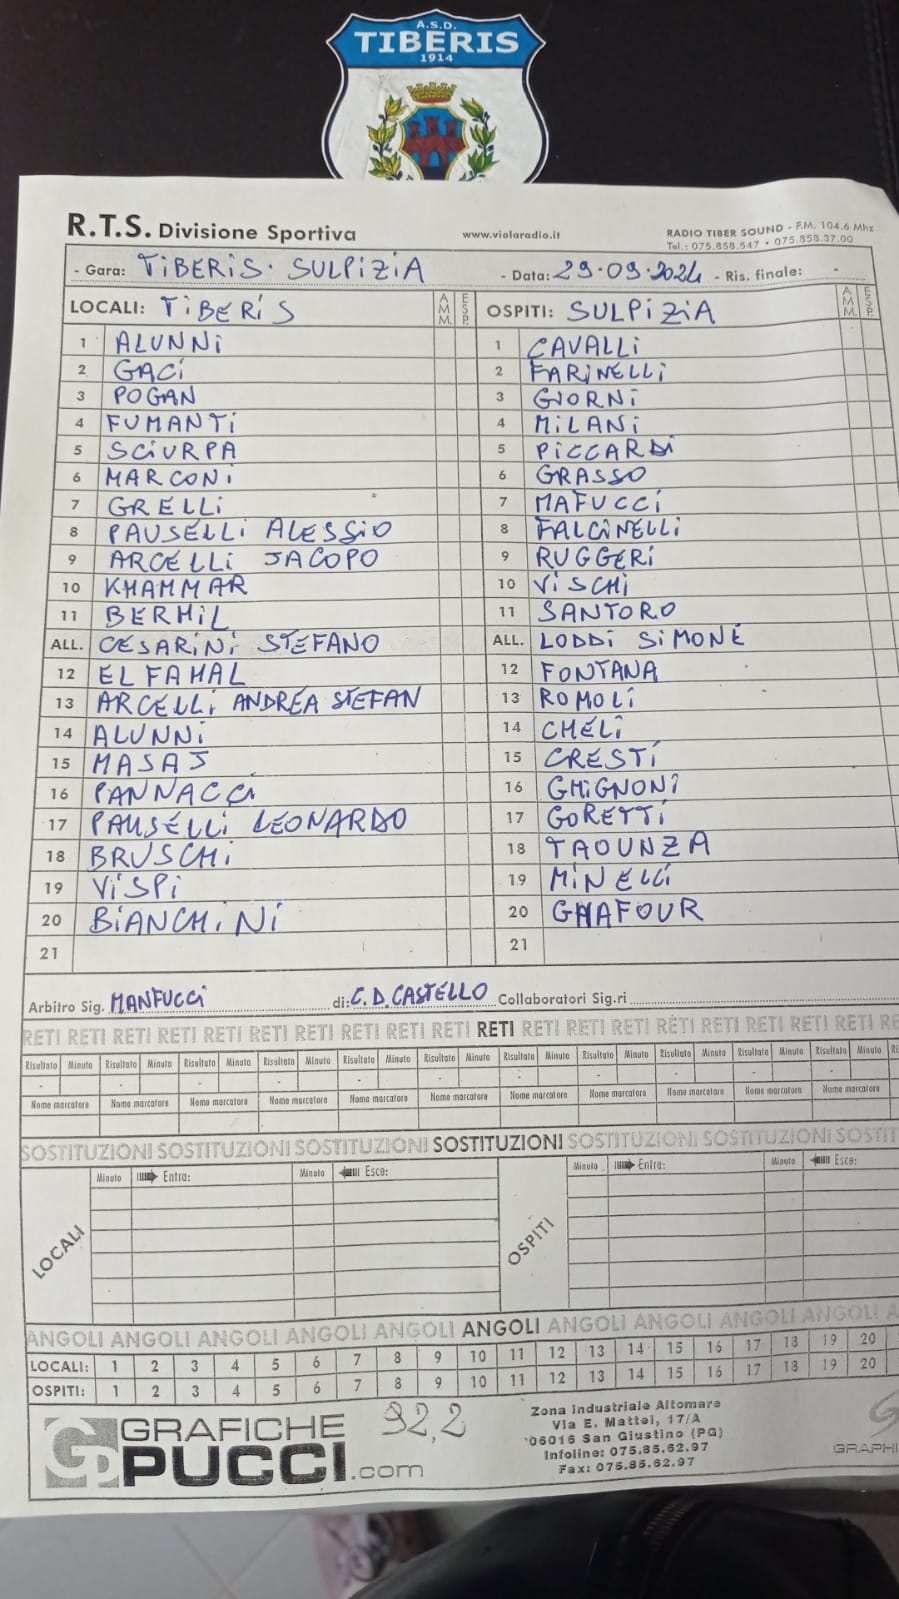 A.S.D.
TIBERIS
1914
R.T.S. Divisione Sportiva www.violaradio.it RADIO TIBER SOUND - F.M. 104.6 Mhz
Tel.: 075.858.547 • 075.858.37.00
- Gara: TIBERIS - SULPIZIA - Data: 29.09.2024 - Ris. finale: -
LOCALI: TIBERIS AMM. ESP. OSPITI: SULPIZIA AMM. ESP.
1 ALUNNI 1 CAVALLI
2 GACI 2 FARINELLI
3 POGAN 3 GIORNI
4 FUMANTI 4 MILANI
5 SCIURPA 5 PICCARDI
6 MARCONI 6 GRASSO
7 GRELLI 7 MAFUCCI
8 PAUSELLI ALESSIO 8 FALCINELLI
9 ARCELLI JACOPO 9 RUGGERI
10 KHAMMAR 10 VISCHI
11 BERHIL 11 SANTORO
ALL. CESARINI STEFANO ALL. LODDI SIMONE
12 EL FAHAL 12 FONTANA
13 ARCELLI ANDREA STEFAN 13 ROMOLI
14 ALUNNI 14 CHELI
15 MASAJ 15 CRESTI
16 PANNACCI 16 GHIGNONI
17 PAUSELLI LEONARDO 17 GORETTI
18 BRUSCHI 18 TAOUNZA
19 VISPI 19 MINELLI
20 BIANCHINI 20 GHAFOUR
21 21
Arbitro Sig. MANFUCCI di: C.D.CASTELLO Collaboratori Sig.ri
RETI RETI RETI RETI RETI RETI RETI RETI RETI RETI RETI RETI RETI RETI RETI RETI RETI RETI RETI RE
Risultato Minuto Risultato Minuto Risultato Minuto Risultato Minuto Risultato Minuto Risultato Minuto Risultato Minuto Risultato Minuto Risultato Minuto Risultato Minuto Risultato
- - - - - - - - - - -
Nome marcatore Nome marcatore Nome marcatore Nome marcatore Nome marcatore Nome marcatore Nome marcatore Nome marcatore Nome marcatore Nome marcatore Nome marcatore
SOSTITUZIONI SOSTITUZIONI SOSTITUZIONI SOSTITUZIONI SOSTITUZIONI SOSTITUZIONI SOSTIT
LOCALI Minuto Entra: Minuto Esce: OSPITI Minuto Entra: Minuto Esce:
ANGOLI ANGOLI ANGOLI ANGOLI ANGOLI ANGOLI ANGOLI ANGOLI ANGOLI ANGOLI A
LOCALI: 1 2 3 4 5 6 7 8 9 10 11 12 13 14 15 16 17 18 19 20
OSPITI: 1 2 3 4 5 6 7 8 9 10 11 12 13 14 15 16 17 18 19 20
GRAFICHE
PUCCI.com
92,2
Zona Industriale Altomare
Via E. Mattei, 17/A
06016 San Giustino (PG)
Infoline: 075.85.62.97
Fax: 075.85.62.97
GRAPHI